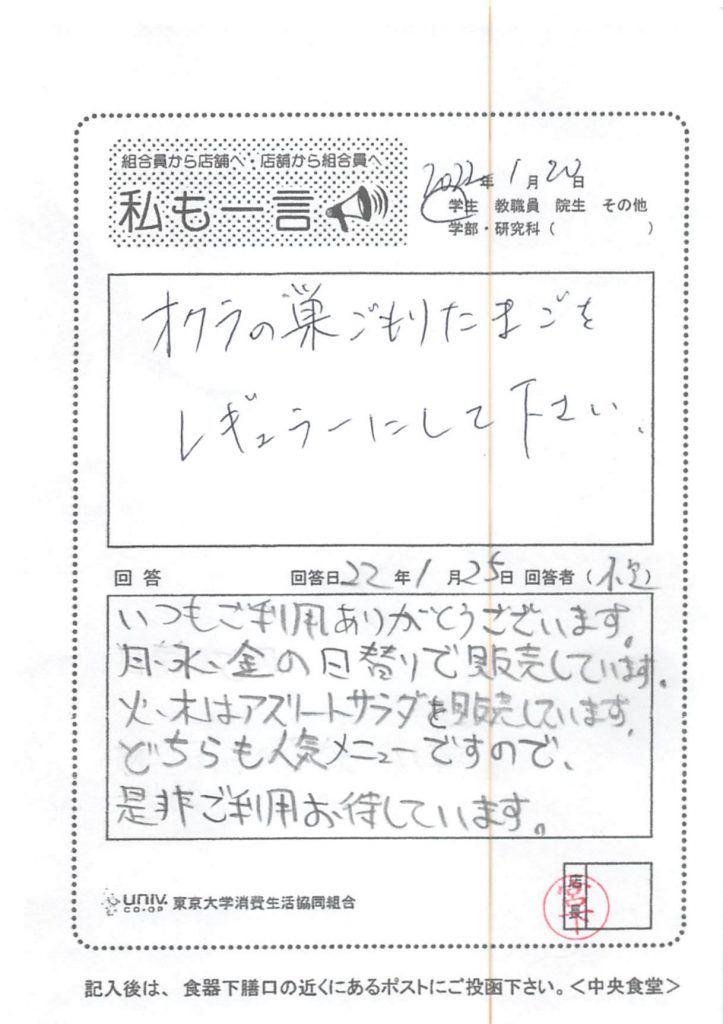 組合員から店舗へ・店舗から組合員へ
私も一言
2022年1月20日
学生 教職員 院生 その他
学部・研究科( )
オクラの巣ごもりたまごを
レギュラーにして下さい。
回答 回答日22年1月25日 回答者( )
いつもご利用ありがとうございます。
月、水、金の日替りで販売しています。
火、木はアスリートサラダを販売しています。
どちらも人気メニューですので、
是非ご利用お待しています。
店長
univ. CO-OP 東京大学消費生活協同組合
記入後は、食器下膳口の近くにあるポストにご投函下さい。<中央食堂>